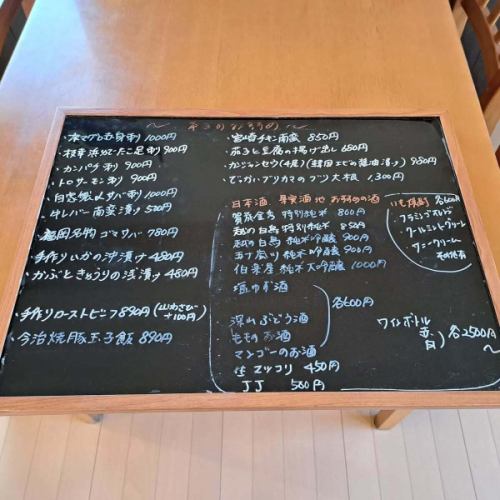 本マグロ赤身刺 1000円
枝幸浜ゆでたこ足刺 900円
カンパチ刺 900円
トロサーモン刺 900円
刺) 1000円
牛レバー南蛮漬り 500円
福岡名物 ゴマサバ 780円
手作りいかの沖漬け 480円
かぶときゅうりの浅漬け 480円
手作りローストビーフ 890円 (山わさび +100円)
今治焼豚玉子飯 890円
〜 本日のおすすめ 〜
宮崎チキン南蛮 850円
茄子と豆腐の揚げ出し 680円
カンジャンセウ(4尾)(韓国エビの醤油漬け) 980円
でっかいブリカマのアラ大根 1,300円
日本酒 果実酒 他 お手頃の酒
賀茂金秀 特別純米 800円
越の白鳥 特別純米 850円
越の白鳥 純米吟醸 900円
純米吟醸 900円
伯楽星 純米大吟醸 1000円
塩ゆず酒
深山ぶどう酒
ももの お酒
マンゴーのお酒
各600円
生マッコリ 450円
JJ 580円
いも焼酎 各600円
フラミンゴオレンジ
クールミントグリーン
サニークリーム
その他有
ワインボトル
赤
白
各2500円〜